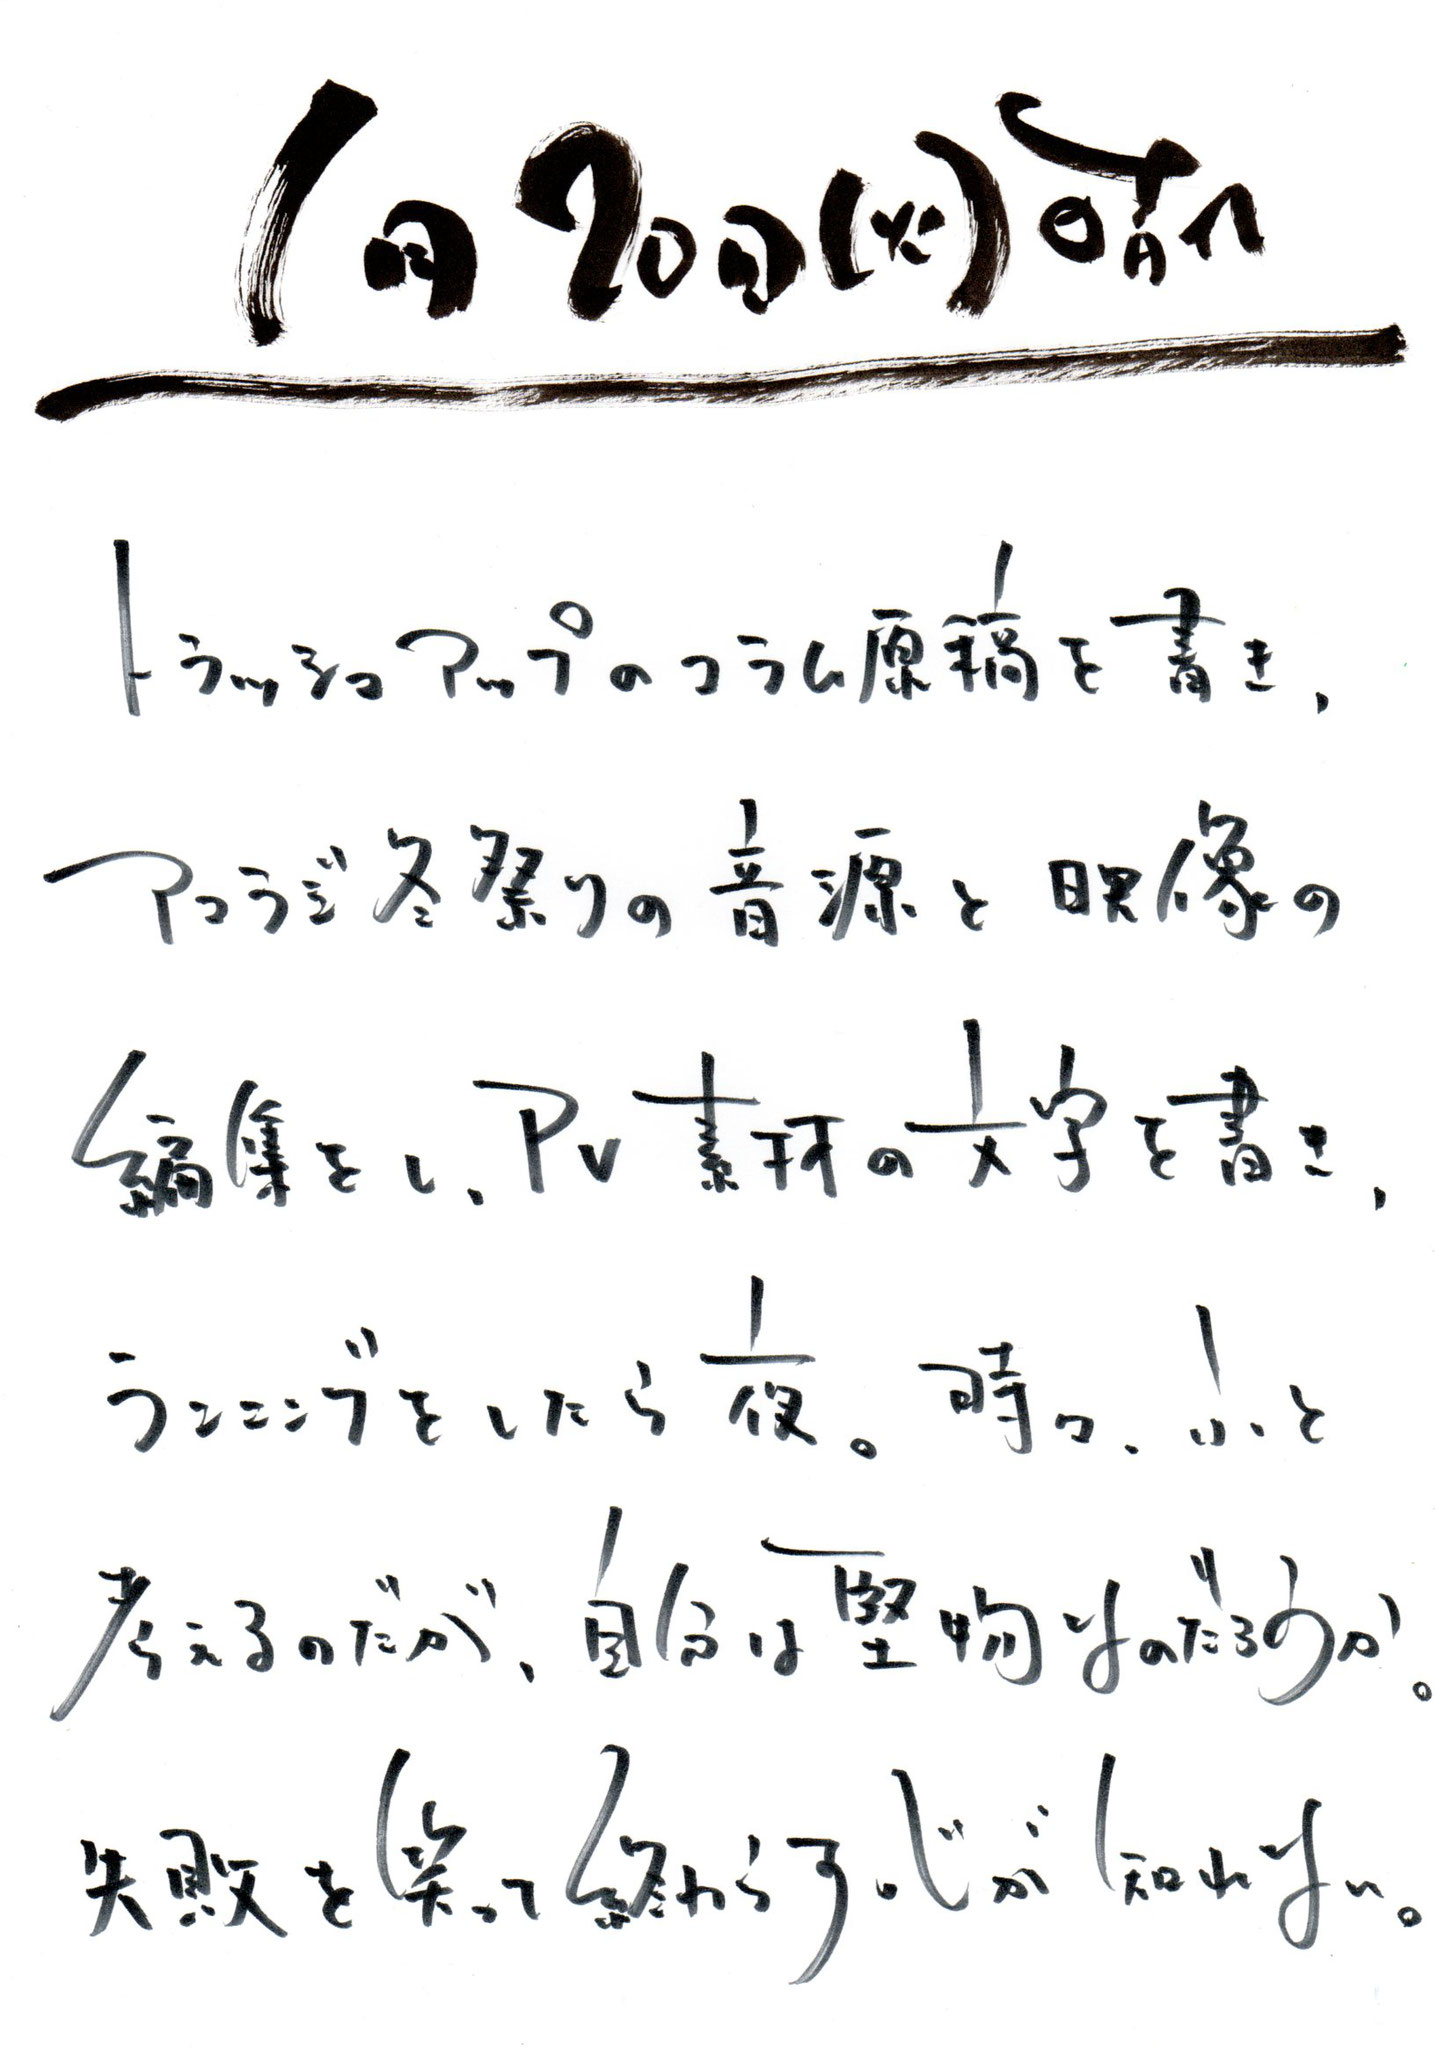 1月20日(火)晴れ
トラッシュアップのコラム原稿を書き、
アコラジ冬祭りの音源と映像の
編集をし、PV素材の文字を書き、
ランニングをしたら夜。時々、ふと
考えるのだが、自分は堅物なのだろうか。
失敗を笑って終わらす心が知れない。